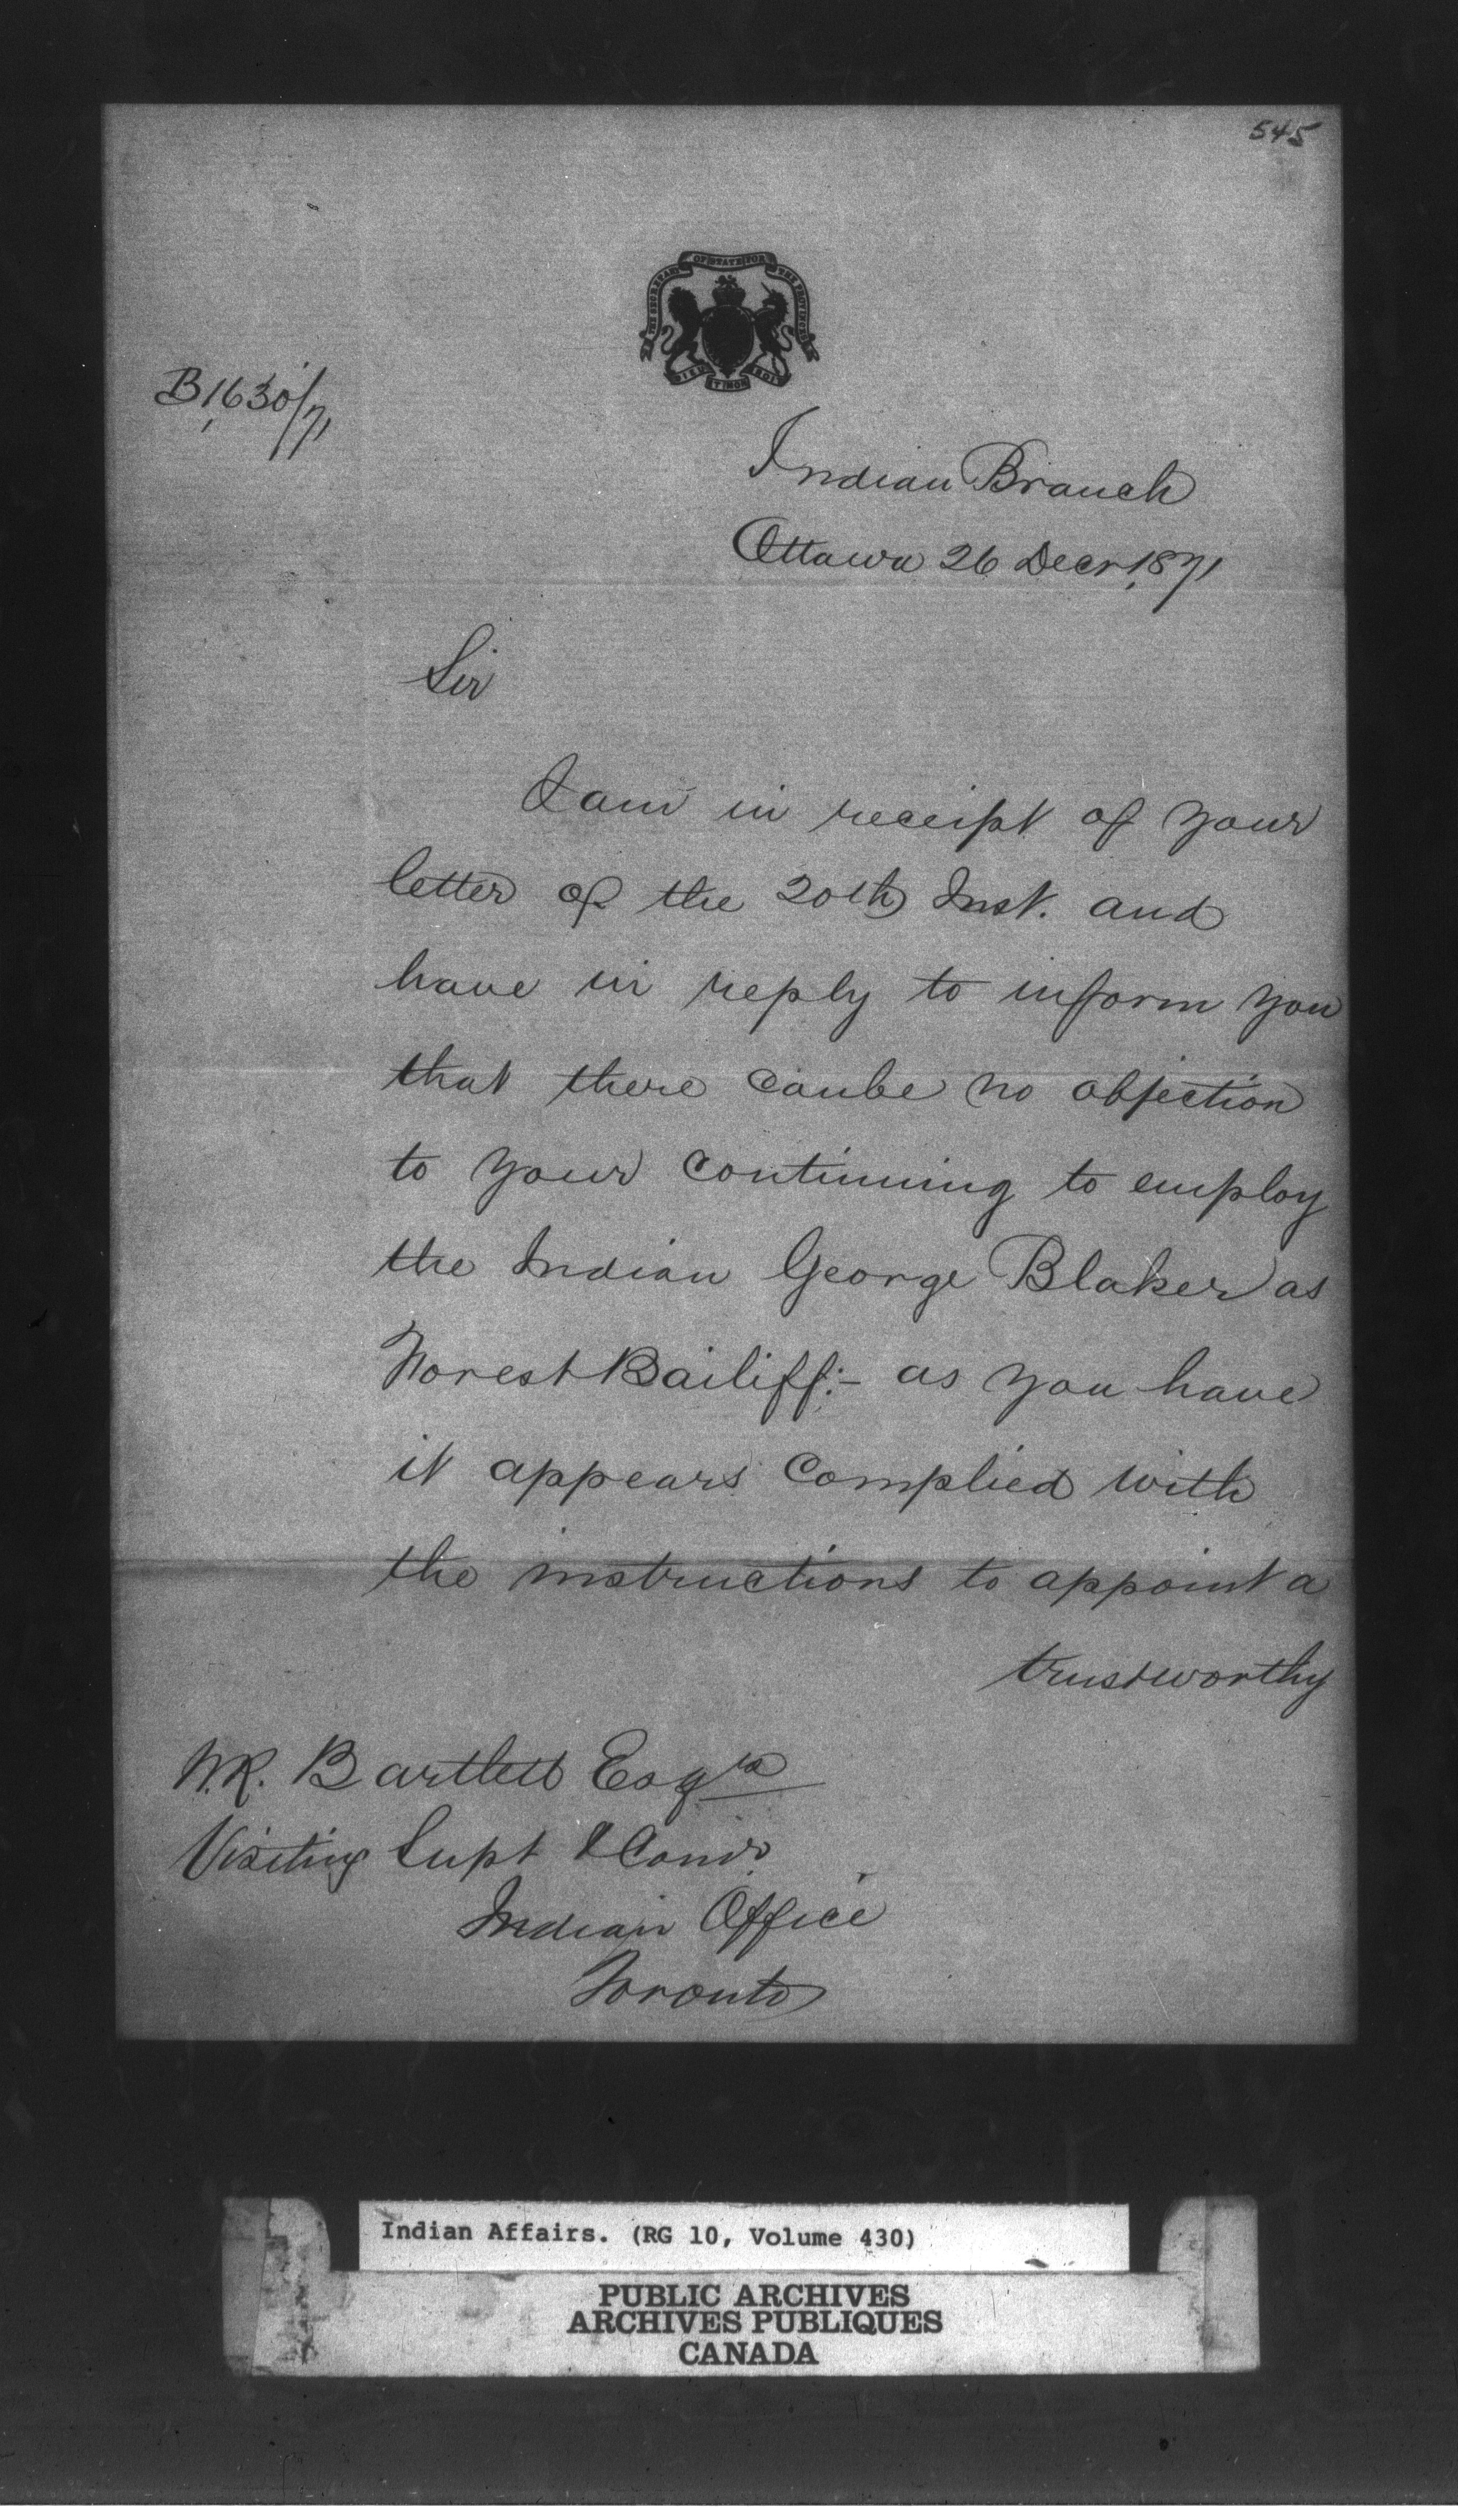 545
THE SECRETARY OF STATE FOR THE PROVINCES
DIEU ET MON DROIT
B1630/71
Indian Branch
Ottawa 26 Decr. 1871
Sir
I am in receipt of your
letter of the 20th Inst. and
have in reply to inform you
that there can be no objection
to your continuing to employ
the Indian George Blaker as
Forest Bailiff:- as you have
it appears complied with
the instructions to appoint a
trustworthy
W.R. Bartlett Esqre
Visiting Supt & Comr.
Indian Office
Toronto
Indian Affairs. (RG 10, Volume 430)
PUBLIC ARCHIVES
ARCHIVES PUBLIQUES
CANADA